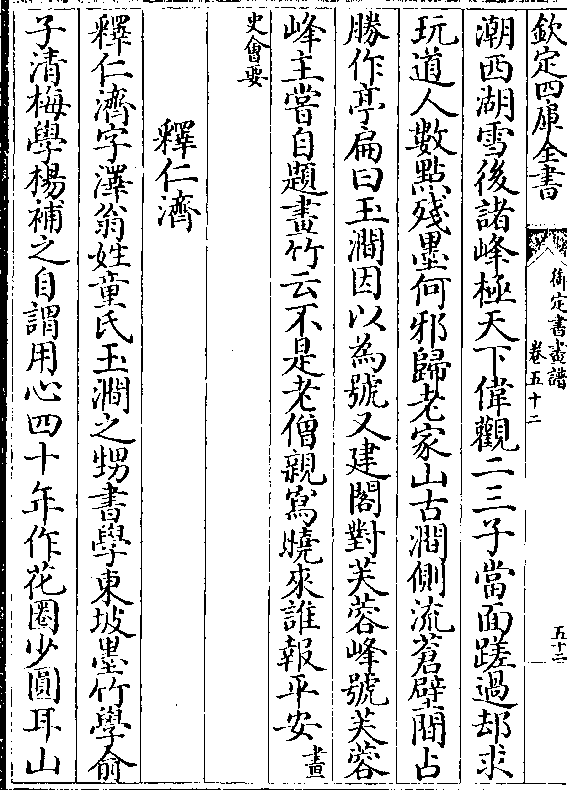 欽定四庫全書
御定書畫譜
卷五十二
五十二
潮西湖雪後諸峰極天下偉觀二三子當面蹉過却求
玩道人數點殘墨何邪歸老家山古澗側流蒼壁間占
勝作亭扁曰玉澗因以為號又建閣對芙蓉峰號芙蓉
峰主嘗自題畫竹云不是老僧親寫曉來誰報平安畫
史會要
釋仁濟
釋仁濟字澤翁姓童氏玉澗之甥書學東坡墨竹學俞
子清梅學楊補之自謂用心四十年作花圈少圓耳山